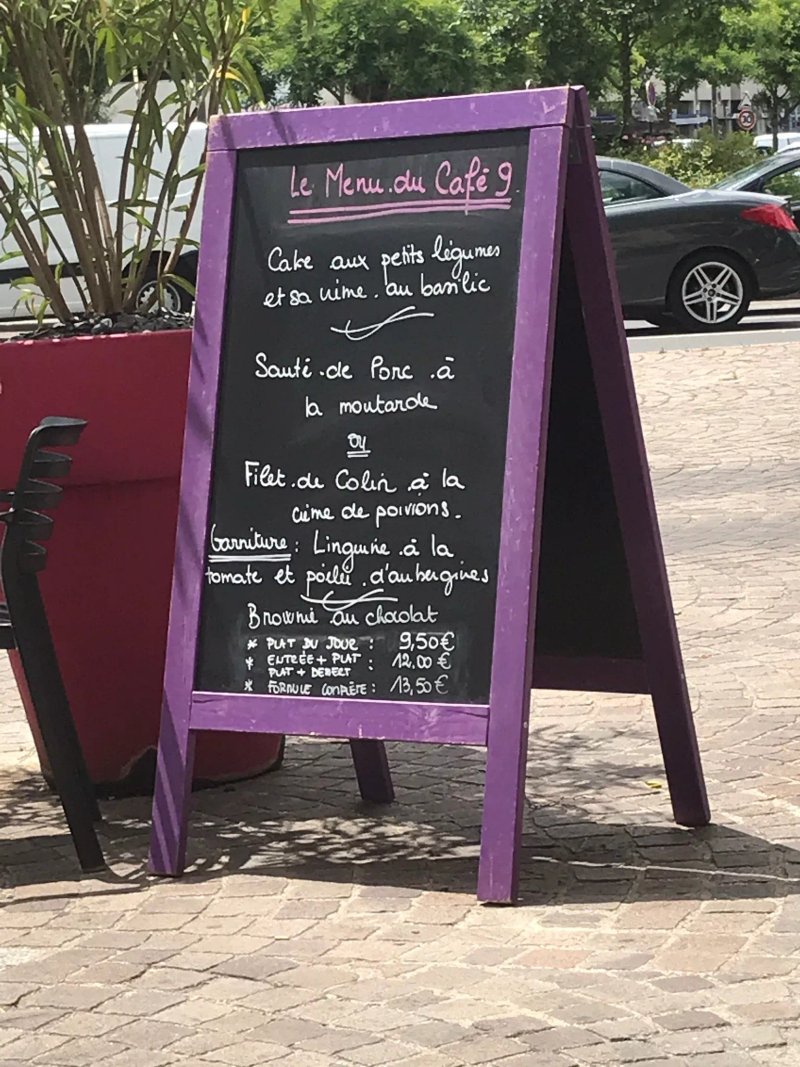 Le Menu du Café 9
Cake aux petits légumes
et sa crème au basilic
Sauté de Porc à
la moutarde
ou
Filet de Colin à la
crème de poivrons.
Garniture : Linguine à la
tomate et poêlée d'aubergines
Brownie au chocolat
* PLAT DU JOUR : 9,50€
* ENTRÉE + PLAT : 12.00€
PLAT + DESERT
* FORMULE COMPLÈTE : 13,50€
30